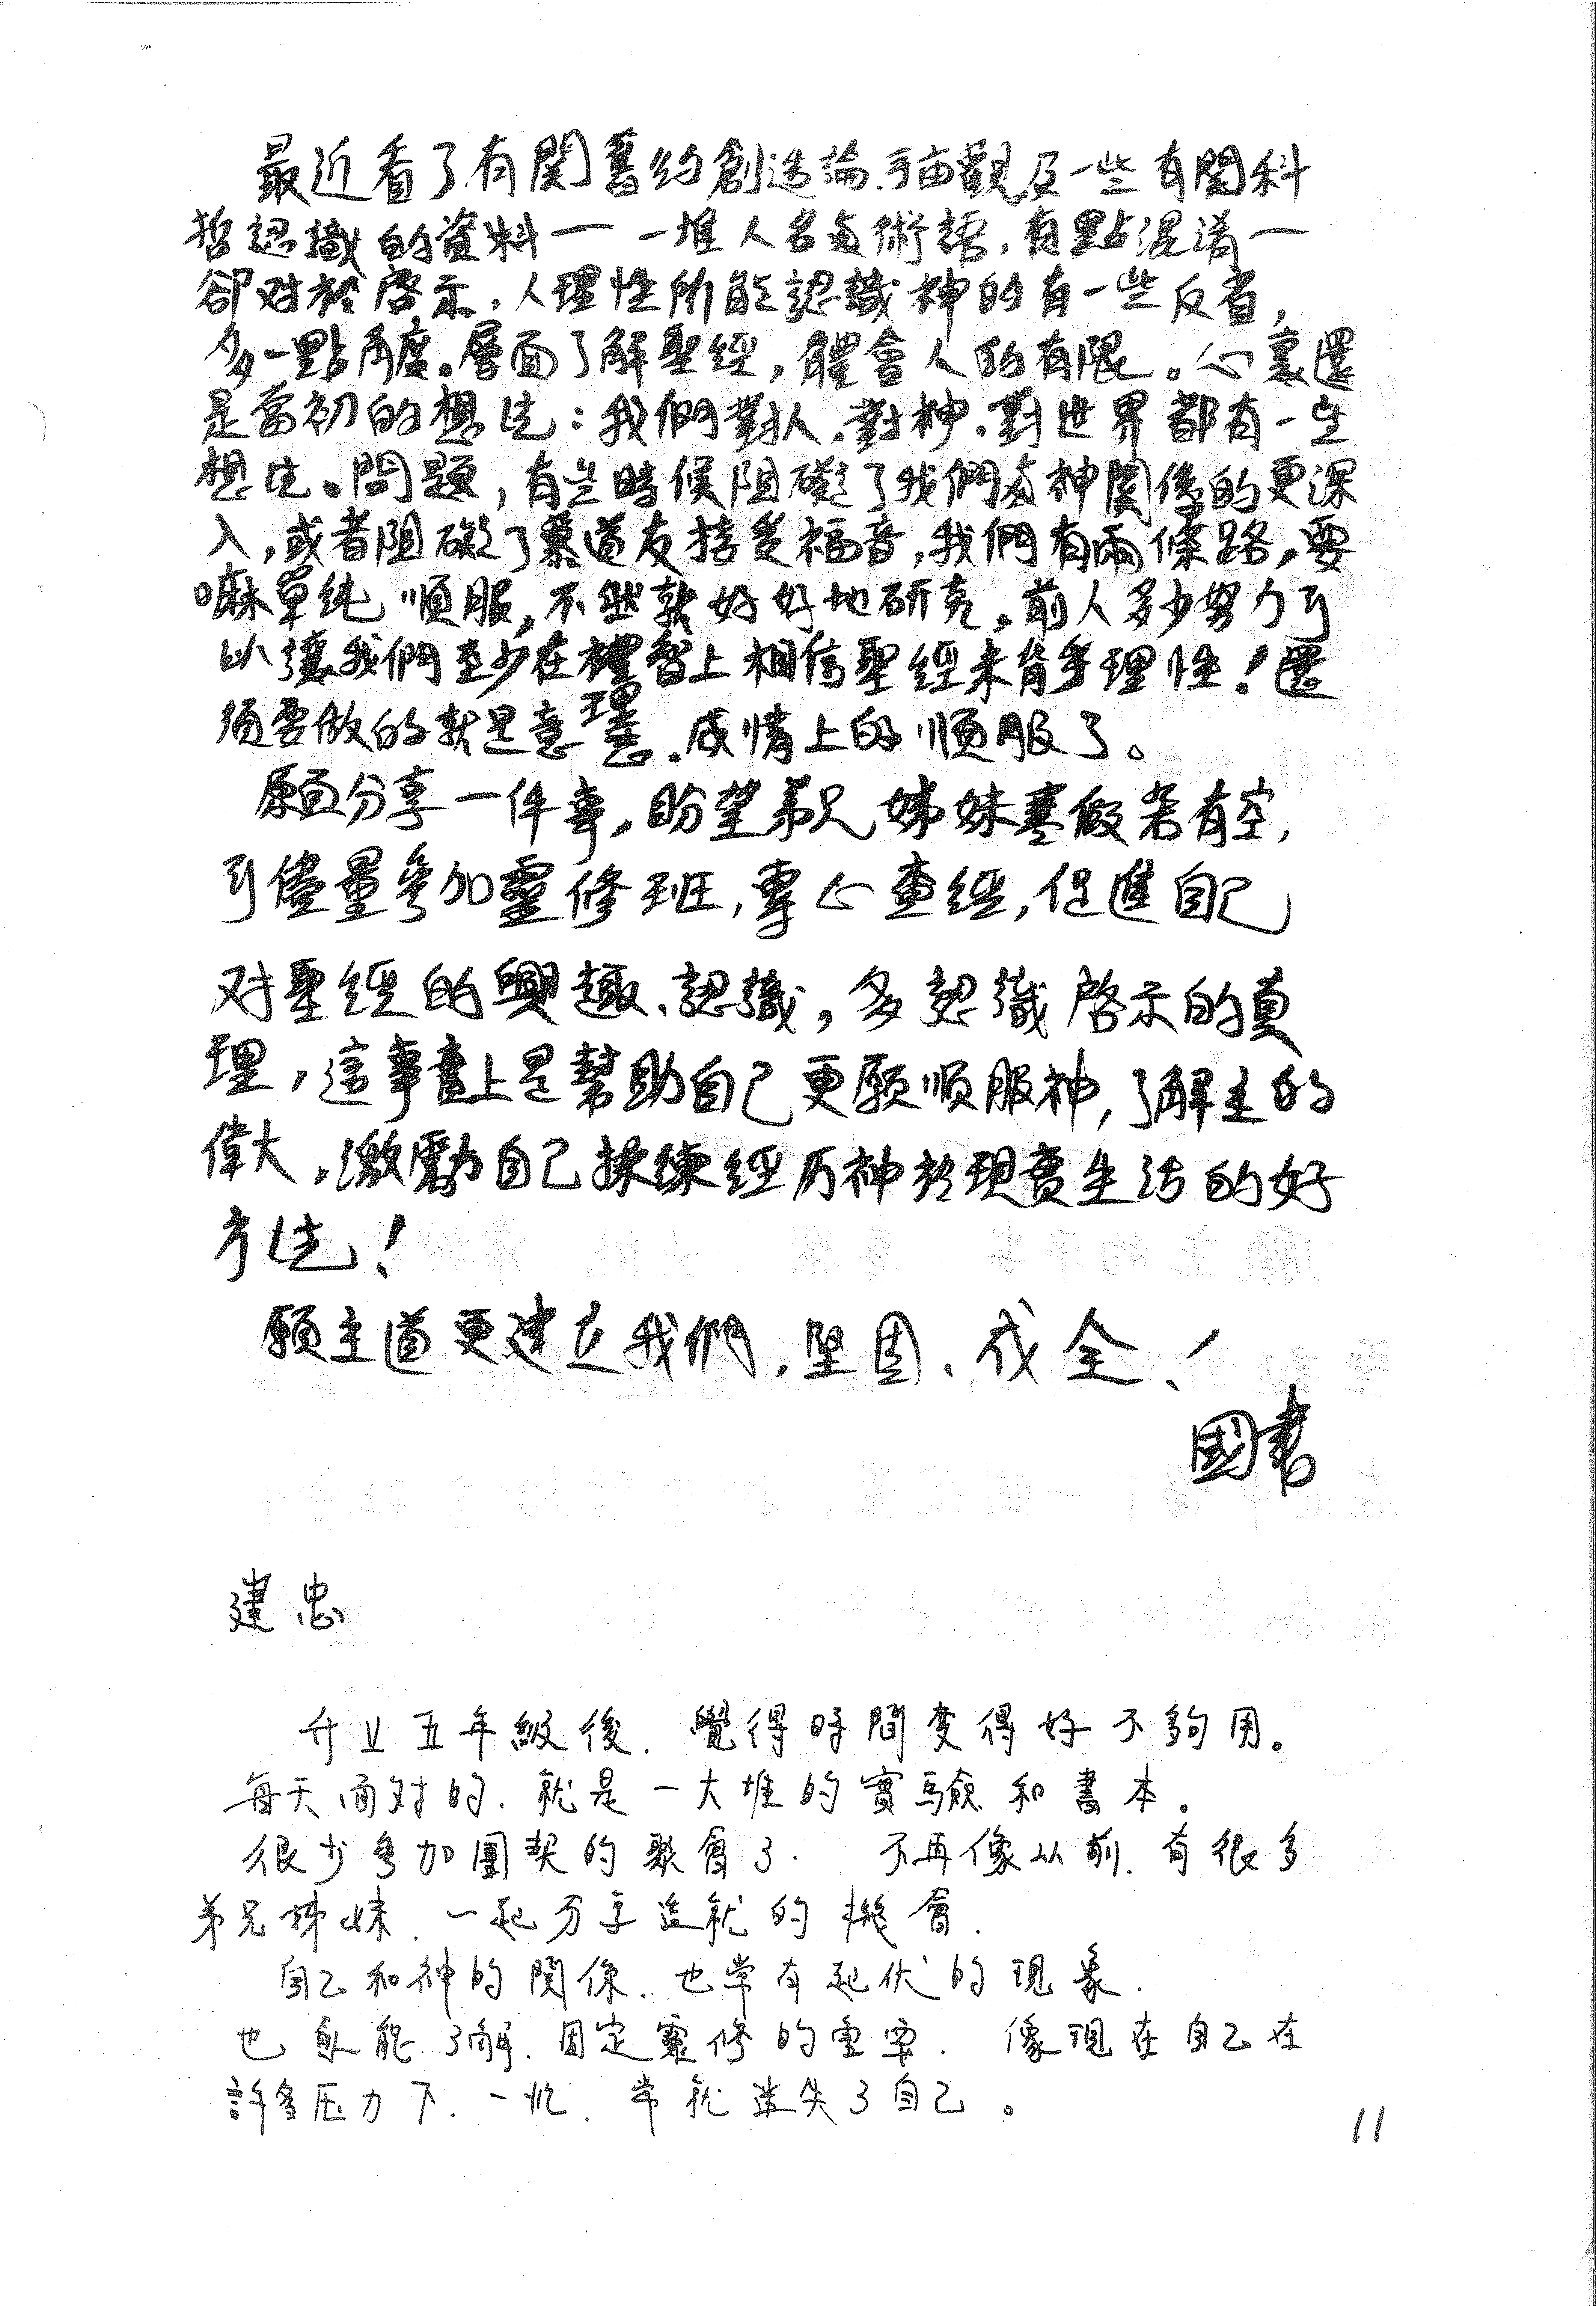 最近看了有関舊約創造論、宇宙觀及一些有関科
哲認識的資料一 一堆人名與術語，有點混淆一
卻对於啓示、人理性所能認識神的有一些反省，
多一點角度。層面了解聖經，體會人的有限。心裏還
是當初的想法：我們對人、對神、對世界都有一些
想法。問題，有些時候阻礙了我們與神関係的更深
入，或者阻礙了慕道友接受福音，我們有兩條路，要
嘛單純順服，不然就好好地研究。前人多少努力可
以讓我們至少在理智上相信聖經未背乎理性！還
須要做的就是意理志、感情上的順服了。
願分享一件事，盼望弟兄姊妹寒假若有空，
可儘量參加靈修班，專心查經，促進自己
对聖經的興趣、認識，多認識啓示的真
理，這事實上是幫助自己更願順服神，了解主的
偉大，激勵自己操練經历神於現實生活的好
方法！
願主道更建立我們，堅固、成全！
國書
建忠
升上五年級後．覺得時間变得好不夠用。
每天面对的．就是一大堆的實驗和書本。
很少參加團契的聚會了． 不再像从前．有很多
弟兄姊妹．一起分享造就的機會．
自己和神的関係．也常有起伏的現象．
也更能了解．固定靈修的重要． 像現在自己在
許多压力下．一忙．常就迷失了自己。
11